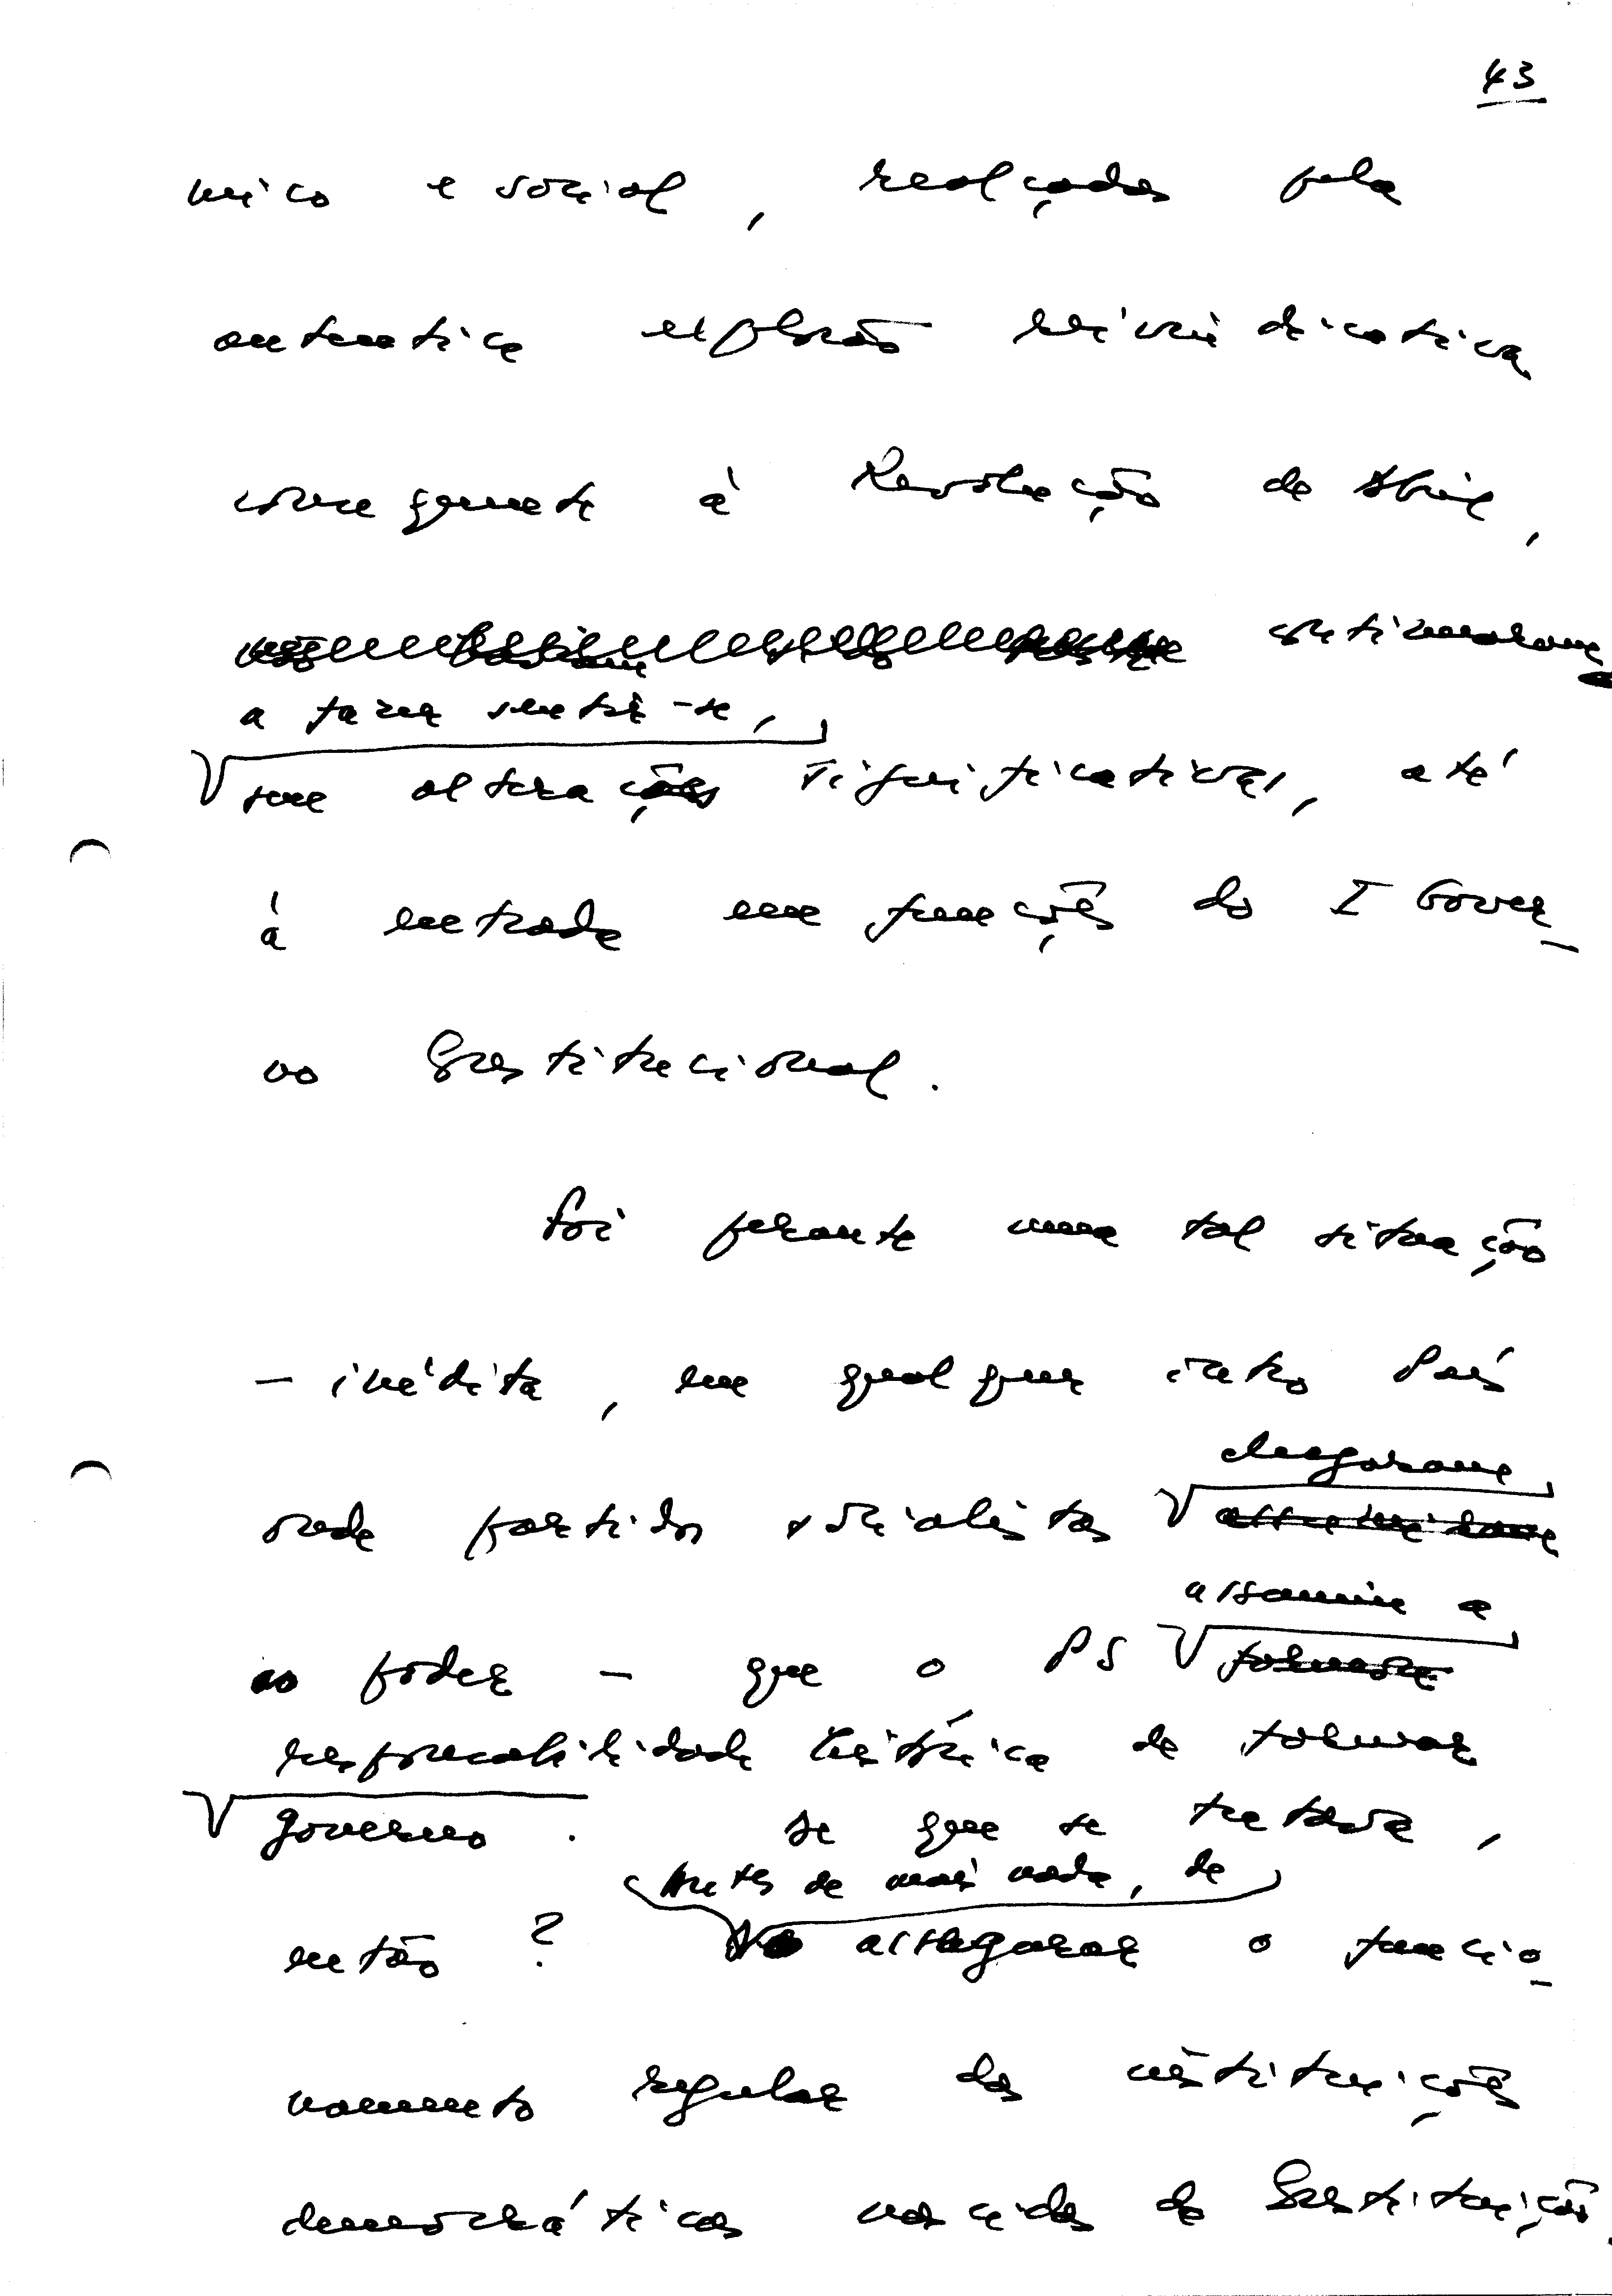 43
mico e social, realçadas pela
autêntica explosão reivindicativa
consequente à Revolução de Abril,
continuaram
a fazer sentir-se,
sem alterações significativas, até
à entrada em funções do I Gover-
no Constitucional.
Foi perante uma tal situação
- inédita, em qualquer outro País
onde partidos socialistas
chegaram
ao poder - que o PS
assumiu a
responsabilidade histórica de formar
governo. De que se tratava,
Antes de mais nada, de
então? assegurar o funcio-
namento regular das instituições
democráticas nascidas da Constituição.